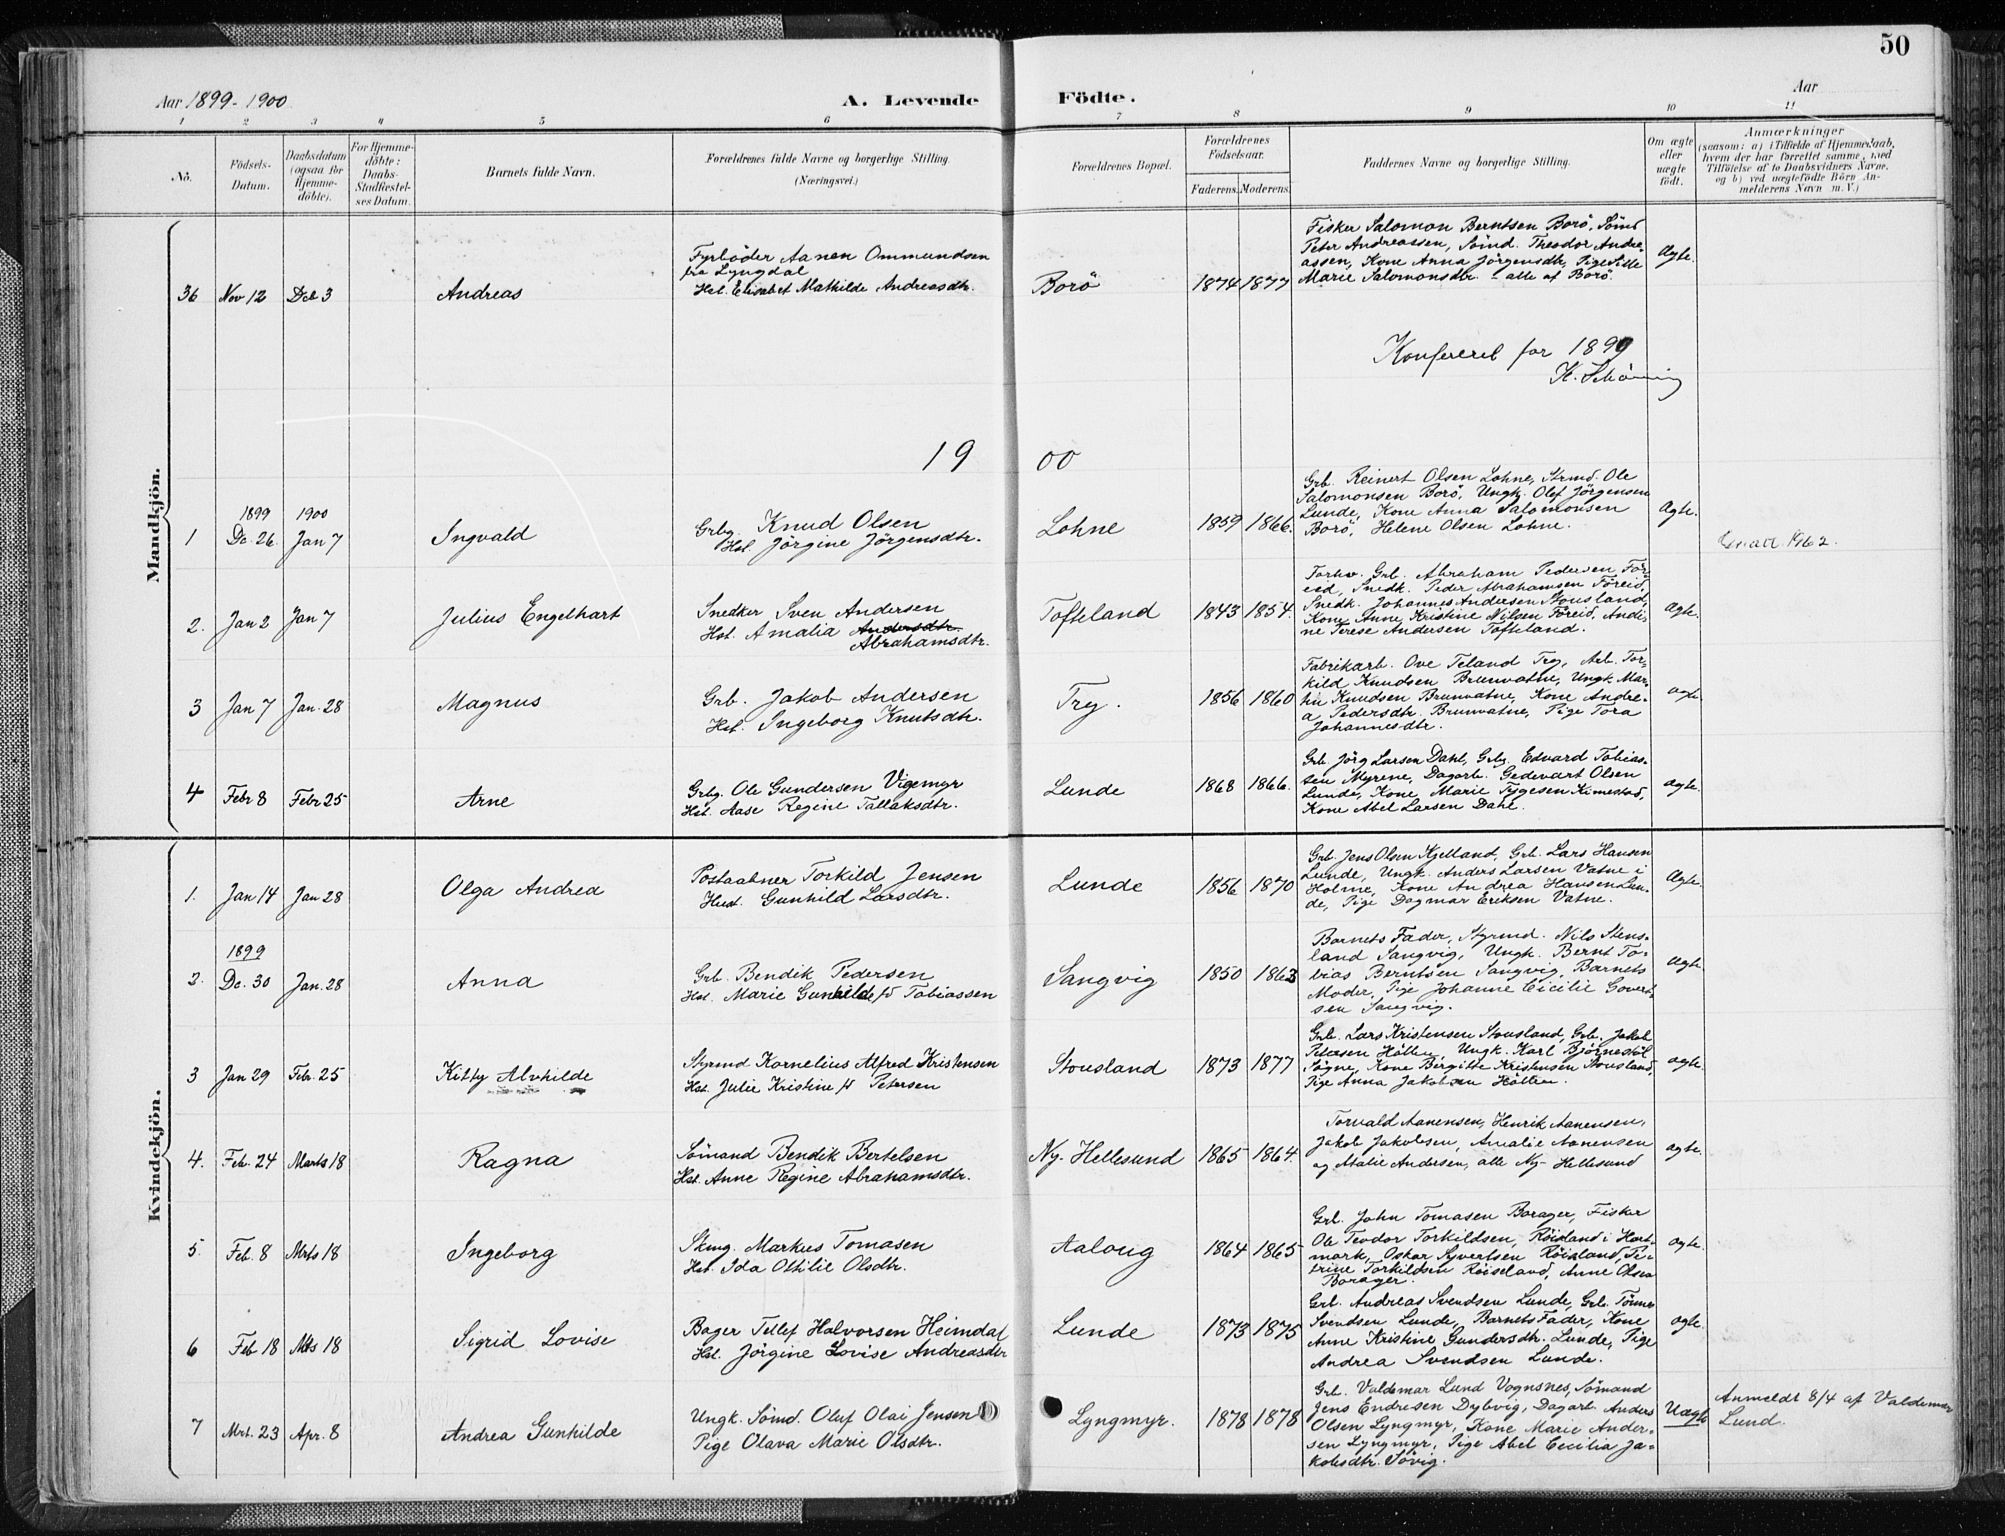 50
Aar 1899-1900
A. Levende Födte.
Aar
1 2 3 4 5 6 7 8 9 10 11
No.
Födsels-Datum.
Daabsdatum (ogsaa for Hjemme-döbte).
For Hjemme-döbte: Daabs-Stadfæstel-ses Datum.
Barnets fulde Navn.
Forældrenes fulde Navne og borgerlige Stilling. (Næringsvei.)
Forældrenes Bopæl.
Forældrenes Födselsaar.
Faderens. Moderens.
Faddernes Navne og borgerlige Stilling.
Om ægte eller uægte födt.
Anmærkninger
(saasom: a) i Tilfælde af Hjemmedaab, hvem der har forrettet samme, med Tilföielse af to Daabsvidners Navne, og b) ved uægtefödte Börn An-melderens Navn m. V.)
Mandkjön.
36 Nov 12 Dec 3 Andreas
Fyrböder Aanen Ommundsen
fra Lyngdal
Hst. Elisabet Mathilde Andreasdtr.
Borö 1874 1877
Fisker Salomon Berntsen Borö, Sömd
Peter Andreassen, Sömd. Theodor Andre-
assen, Kone Anna Jörgensdtr, Pige Sille
Marie Salomonsdtr - alle af Borö
Ægte.
Konfereret for 1899
K. Schönning
1900
1 1899 De. 26. 1900 Jan 7 Ingvald
Grbg. Knud Olsen
Hst. Jörgine Jörgensdtr.
Lohne 1859 1866.
Grb. Reinert Olsen Lohne, Strmd. Ole
Salomonsen Borö, Ungk. Olef Jörgensen
Lunde, Kone Anna Salomonsen
Borö, Helene Olsen Lohne.
Ægte.
1962.
2. Jan 2 Jan 7 Julius Engelhart
Snedker Sven Andersen
Hst. Amalia Andersdtr.
Abrahamsdtr.
Tofteland 1843 1854.
Forhv. Grb. Abraham Pedersen För-
eid, Snedk. Peder Abrahamsen Föreid,
Snedk. Johannes Andersen Stousland,
Kone Anne Kristine Nilsen Föreid, Andi-
ne Terese Andersen Tofteland.
ægte.
3 Jan 7 Jan. 28 Magnus
Grb. Jakob Andersen
Hst. Ingeborg Knutsdtr.
Try. 1856 1860
Fabrikarb. Ove Teland Try, Arb. Tor-
kild Knudsen Brunvatne, Ungk Mar-
tin Knudsen Brunvatne, Kone Andre-
a Pedersdtr. Brunvatne, Pige Tora
Johannesdtr.
ægte
4 Febr 8 Febr 25 Arne
Grbg. Ole Gundersen Vigemyr
Hst. Aase Regine Tallaksdtr.
Lunde 1868 1866.
Grb. Jörg Larsen Dahl, Grbg. Edvard Tobias-
sen Myrene, Dagarb. Gedevart Olsen
Lunde, Kone Marie Tygesen Kimestad,
Kone Abel Larsen Dahl.
ægte.
Kvindekjön.
1. Jan 14 Jan 28 Olga Andrea
Postaabner Torkild Jensen
Hust. Gunhild Larsdtr.
Lunde 1856 1870
Grb. Jens Olsen Kjelland, Grb. Lars Hansen
Lunde, Ungk. Anders Larsen Vatne i
Holme, Kone Andrea Hansen Lun-
de, Pige Dagmar Eriksen Vatne.
Ægte.
2. 1899 De. 30 Jan. 28 Anna
Grb. Bendik Pedersen
Hst. Marie Gunhilde fd Tobiassen
Sangvig 1850 1863
Barnets Fader, Styrmd. Nils Stens-
land Sangvig, Ungk. Bernt To-
bias Berntsen Sangvig, Barnets
Moder, Pige Johanne Cicilie Govert-
sen Sangvig.
ægte.
3 Jan 29 Febr. 25 Kitty Alvhilde
Styrmd Kornelius Alfred Kristensen
Hst. Julie Kristine fd Petersen
Stousland 1873 1877
Grb. Lars Kristensen Stousland, Grb. Jakob
Petersen Hölten, Ungk. Karl Bjørnestöl
Søgne, Kone Bergitte Kristensen Stousland,
Pige Anna Jakobsen Hölten.
ægte.
4. Feb. 24 Marts 18 Ragna
Sömand Bendik Bertelsen
Hst. Anne Regine Abrahamsdtr.
Ny-Hellesund 1865 1864.
Torvald Aanensen, Henrik Aanensen,
Jakob Jakobsen, Amalie Aanensen
og Malie Andersen, alle Ny-Hellesund
ægte.
5. Feb. 8 Mrts 18 Ingeborg
Skmg. Markus Tomasen
Hst. Ida Othilie Olsdtr.
Aaloug 1864 1865
Grb. John Tomasen Borager, Fisker
Ole Teodor Torkildsen, Röisland i Hart-
mark, Oskar Syvertsen Röisland, Pe-
trine Torkildsen Röiseland, Anne Olsen
Borager.
ægte.
6 Feb 18 Mts 18 Sigrid Lovise
Bager Tellef Halvorsen Heimdal
Hst. Jörgine Lovise Andreasdtr
Lunde 1873 1875
Grb. Andreas Svendsen Lunde, Grb. Tönnes
Svendsen Lunde, Barnets Fader, Kone
Anne Kristine Gundersdtr. Lunde, Pige
Andrea Svendsen Lunde.
ægte.
7 Mrt. 23 Apr. 8 Andrea Gunhilde
Ungk. Sömd. Oluf Olai Jensen
Pige Olava Marie Olsdtr.
Lyngmyr. 1878 1878
Grb. Valdemar Lund Vognsnes, Sömand
Jens Endresen Dybvig, Dagarb. Anders
Olsen Lyngmyr, Kone Marie Ander-
sen Lyngmyr, Pige Abel Cecilia Ja-
kobsdtr. Sövig.
Uægte
Anmeldt 8/4 af Valdemar
Lund.